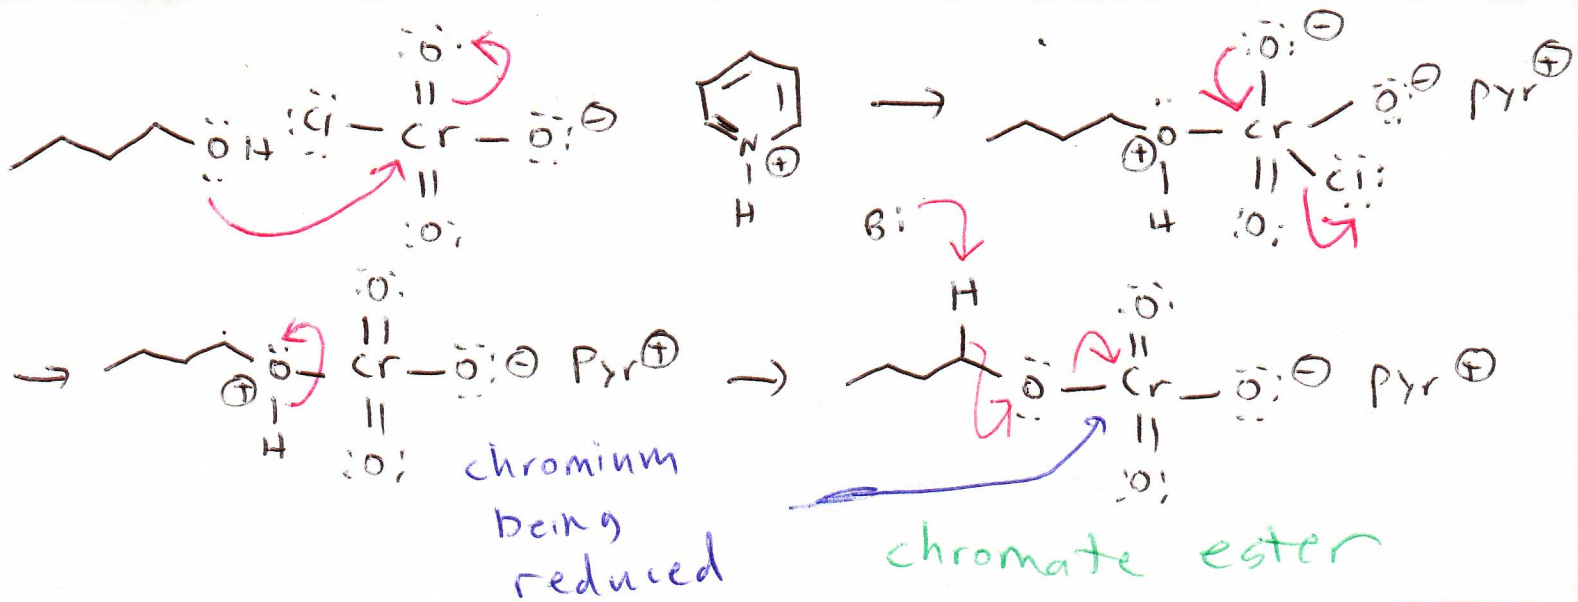 O
OH Cl — Cr — O ⊖
N ⊕
H
O
→
O ⊖
O — Cr — O ⊖ Pyr ⊕
⊕
Cl
H
O
B:
H
→
O
O — Cr — O ⊖ Pyr ⊕
⊕
H
O
→
O
O — Cr — O ⊖ Pyr ⊕
O
chromium
being
reduced
chromate ester